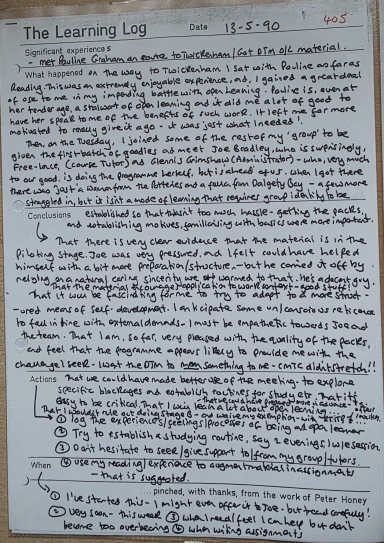 The Learning Log Date 13-5-90 405
Significant experiences
- met Pauline Graham en route to Twickenham/Got DTM o/c material.
What happened on the way to Twickenham I sat with Pauline as far as
Reading. This was an extremely enjoyable experience, and, I gained a great deal
of use to me in my impending battle with open learning. Pauline is, even at
her tender age, a stalwart of open learning and it did me a lot of good to
have her speak to me of the benefits of such work. It left me far more
motivated to really give it a go - it was just what I needed!
Then, on the Tuesday, I joined some of the rest of my 'group' to be
given the first batch of goodies and meet Joe Bradley, who is, surprisingly,
Free-lance, (Course Tutor) and Glennis Grimshaw (Administrator) - who, very much
to our good, is doing the programme herself, but is ahead of us. When I got there
there was just a woman from the Potteries and a fella from Dalgety Boy - a few more
straggled in, but it isn't a mode of learning that requires group identity to be
Conclusions established so that wasn't too much hassle - getting the packs,
and establishing motives, familiarising with basics were more important.
That there is very clear evidence that the material is in the
piloting stage. Joe was very pressured, and I felt could have helped
himself with a bit more preparation/structure - but he carried it off by
relying on a natural caring sincerity we all warmed to. He's a decent guy.
That the material encourages application to work context - good stuff!
That it will be fascinating for me to try to adapt to a most struct-
-ured means of self-development. I anticipate some unconscious reticence
to feel in line with external demands. I must be empathetic towards Joe and
the team. That I am, so far, very pleased with the quality of the packs,
and feel that the programme appears likely to provide me with the
challenge I seek. I want the DTM to mean something to me - CMTC didn't stretch!!
Actions that we could have made better use of the meeting - to explore
specific blockages and establish routines for study etc. That it's
easy to be critical, that I may learn a lot about open learning
① log the experiences/feelings/processes of being an open learner
② Try to establish a studying routine, say 2 evenings/w/e session
③ Don't hesitate to seek/give support to/from my group/tutors.
When ④ use my reading/experience to augment material in assignments
- that is suggested.
.... pinched, with thanks, from the work of Peter Honey
① I've started this - I might even offer it to Joe - but tread carefully!
② Very soon - this week ③ when I need/feel I can help but don't
become too overbearing ④ when writing assignments